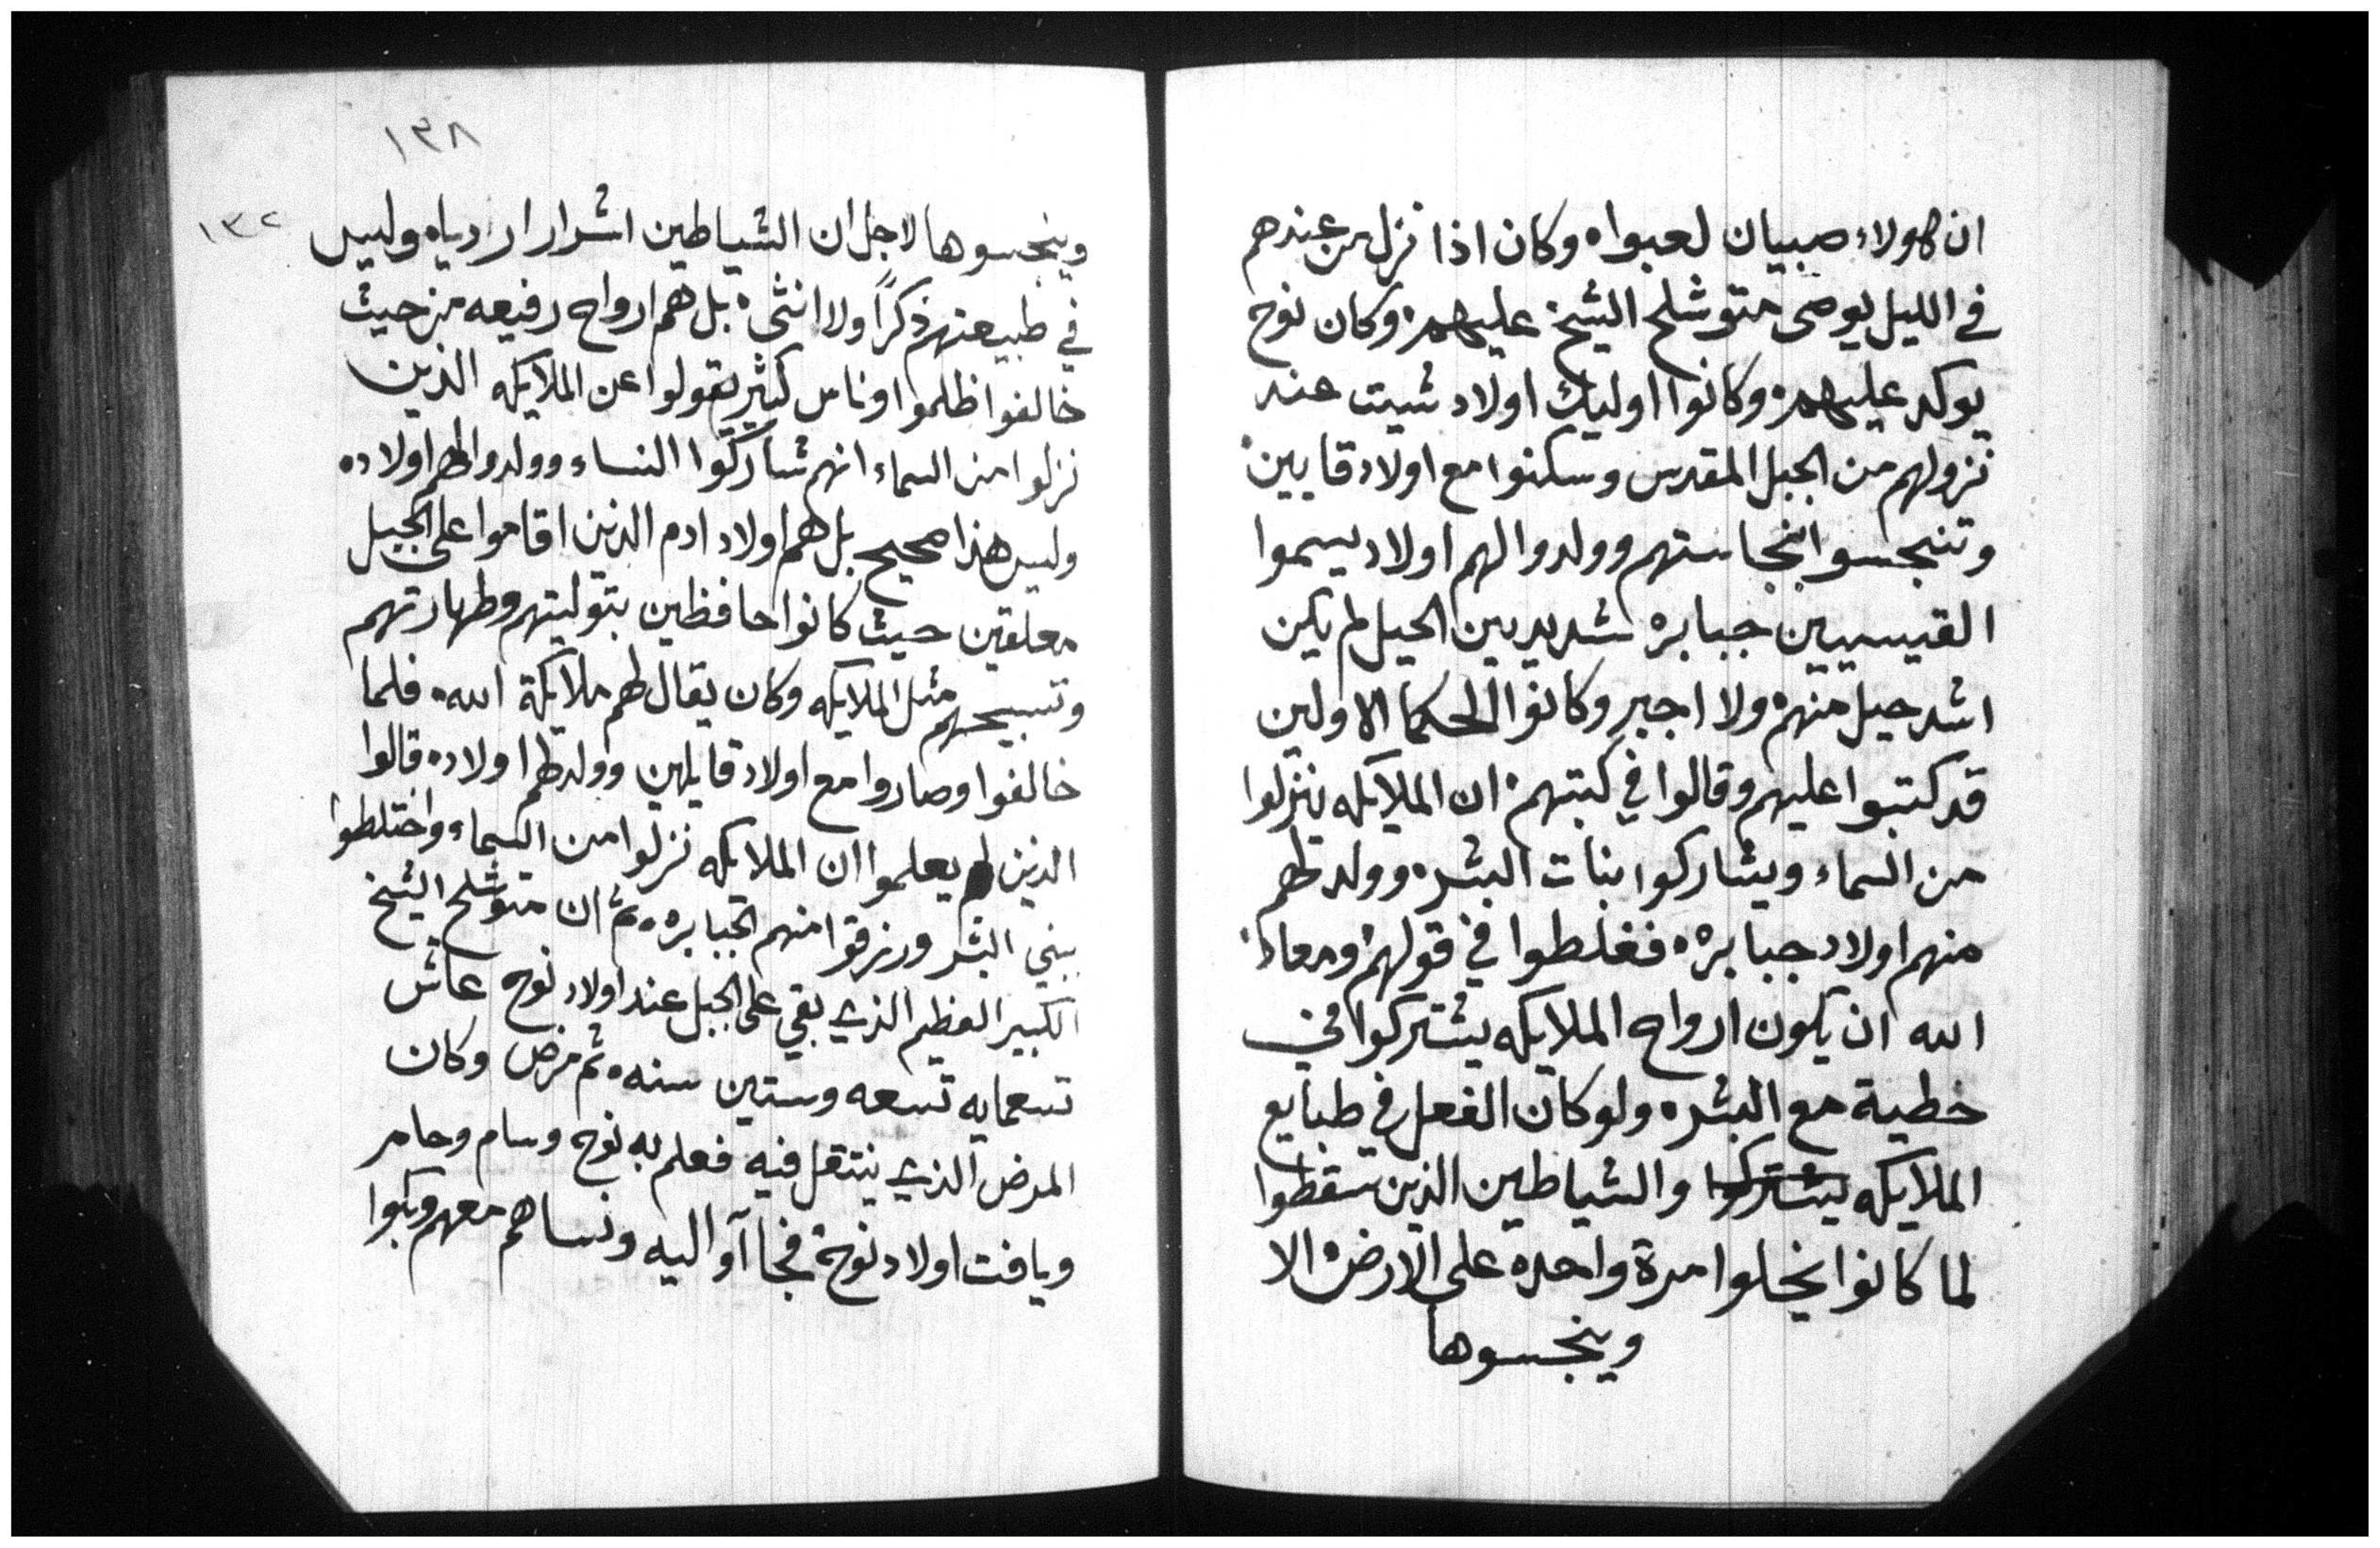 ان هولاء صبيان لعبوا ه وكان اذا نزل من عندهم
في الليل يوصى متوشلح الشيخ عليهم ه وكان نوح
يوكد عليهم ه وكانوا اوليك اولاد شيت عند
نزولهم من الجبل المقدس وسكنوا مع اولاد قايين
وتنجسوا بنجاستهم وولدوا لهم اولاد يسموا
القيسيين جبابره شديدين الحيل لم يكن
اشد حيل منهم ولا اجبر وكانوا الحكما الاولين
قد كتبوا عليهم وقالوا في كتبهم ان الملايكه ينزلوا
من السماء ويشاركوا بنات البشر ه وولد لهم
منهم اولاد جبابره ه فغلطوا في قولهم ومعاد
الله ان يكون ارواح الملايكه يشتركوا في
خطية مع البشر ه ولو كان الفعل في طبايع
الملايكه يشتركوا والشياطين الذين سقطوا
لما كانوا يخلوا مرة واحده على الارض ه الا
وينجسوها
١٣٨
١٣٢
وينجسوها لاجل ان الشياطين اشرار اردياه وليس
في طبيعتهم ذكراً ولا انثى ه بل هم ارواح رفيعه من حيث
خالفوا ظلموا وناس كثير يقولوا عن الملايكه الذين
نزلوا من السماء انهم شاركوا النساء وولدوا لهم اولاد ه
وليس هذا صحيح بل هم اولاد ادم الذين اقاموا على الجبل
معلقين حيث كانوا حافظين بتوليتهم وطهارتهم
وتسبيحهم مثل الملايكه وكان يقال لهم ملايكة الله ه فلما
خالفوا وصاروا مع اولاد قايين وولد لهم اولاد ه قالوا
الذين لم يعلموا ان الملايكه نزلوا من السماء واختلطوا
ببني البشر ورزقوا منهم الجبابره ه ثم ان متوشلح الشيخ
الكبير العظيم الذي بقي على الجبل عند اولاد نوح عاش
تسعمايه تسعه وستين سنه ه ثم مرض وكان
المرض الذي ينتقل فيه فعلم به نوح وسام وحام
ويافت اولاد نوح ه فجاآوا اليه ونساهم معهم وبكوا